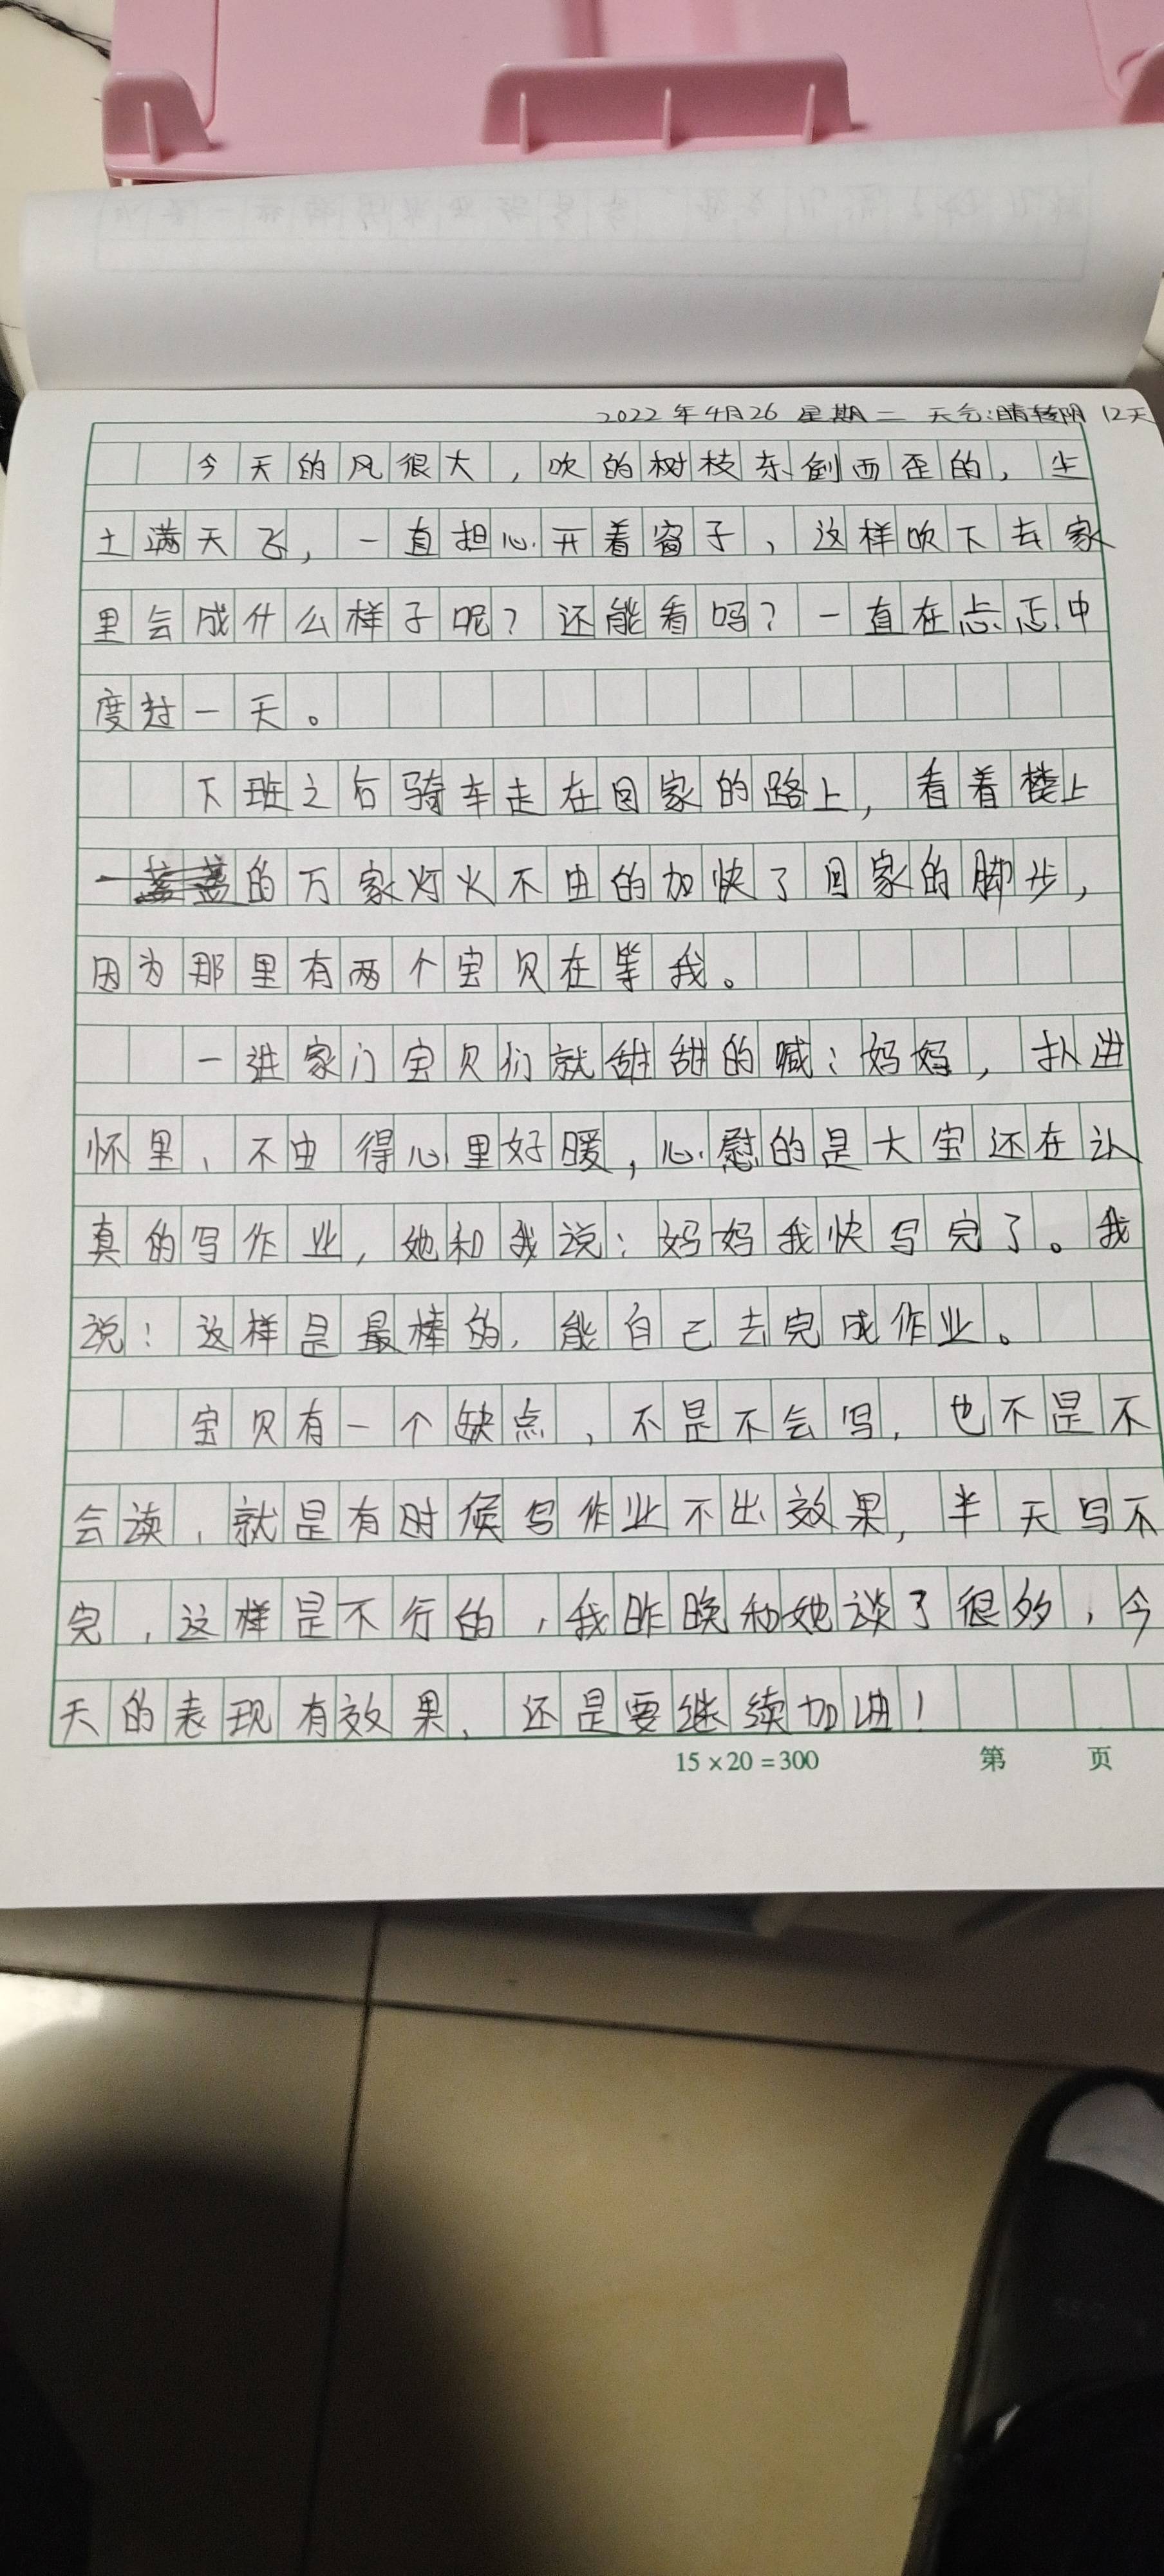 2022年4月26 星期二 天气:晴转阴 12天
今天的风很大,吹的树枝东倒西歪的,尘
土满天飞,一直担心开着窗子,这样吹下去家
里会成什么样子呢?还能看吗?一直在忐忑中
度过一天。
下班之后骑车走在回家的路上,看着楼上
的万家灯火不由的加快了回家的脚步,
因为那里有两个宝贝在等我。
一进家门宝贝们就甜甜的喊:妈妈,扑进
怀里、不由得心里好暖,心慰的是大宝还在认
真的写作业,她和我说:妈妈我快写完了。我
说:这样是最棒的,能自己去完成作业。
宝贝有一个缺点,不是不会写,也不是不
会读,就是有时候写作业不出效果,半天写不
完,这样是不行的,我昨晚和她谈了很多,今
天的表现有效果,还是要继续加油!
15×20=300 第 页